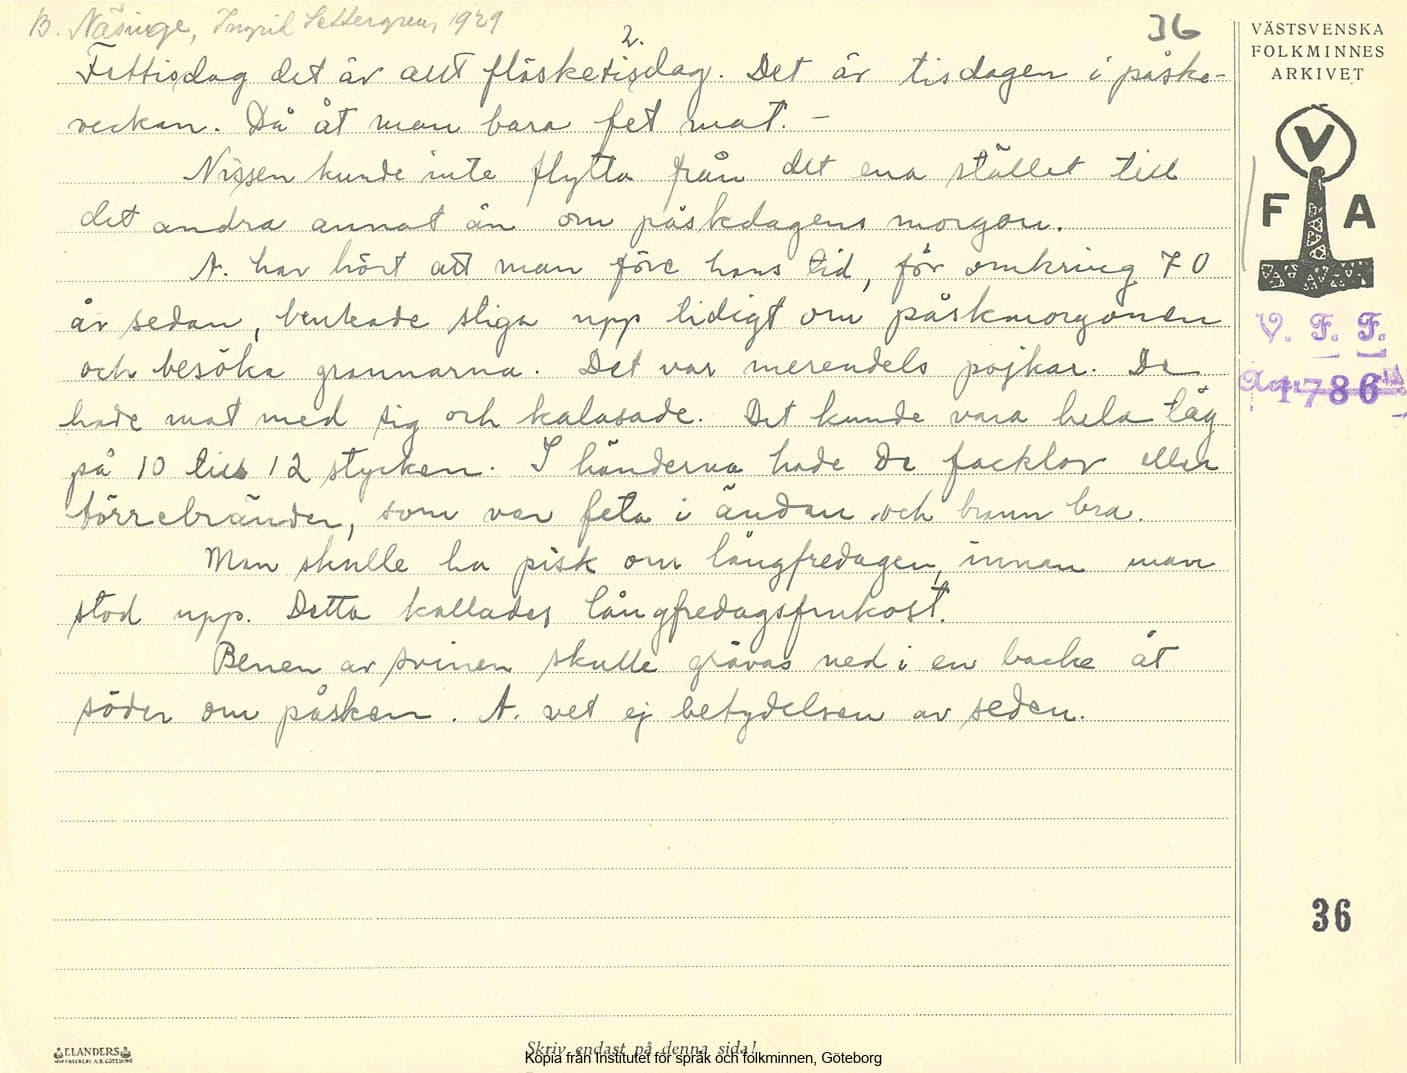 B. Näsinge, Ingrid Settergren, 1929
36
2.
Fettisdag det är allt fläsketisdag. Det är tisdagen i påske-
veckan. Då åt man bara fet mat. –
Nissen kunde inte flytta från det ena stället till
det andra annat än om påskdagens morgon.
A. har hört att man före hans tid, för omkring 70
år sedan, brukade stiga upp tidigt om påskmorgonen
och besöka grannarna. Det var merendels pojkar. De
hade mat med sig och kalasade. Det kunde vara hela tåg
på 10 till 12 stycken. I händerna hade de facklor eller
törrebränder, som var feta i ändan och brann bra.
Man skulle ha pisk om långfredagen, innan man
stod upp. Detta kallades långfredagsfrukost.
Benen av svinen skulle grävas ned i en backe åt
söder om påsken. A. vet ej betydelsen av seden.
VÄSTSVENSKA
FOLKMINNES
ARKIVET
V
F A
V. F. F.
1786
36
ELANDERS
Skriv endast på denna sida!
Kopia från Institutet för språk och folkminnen, Göteborg